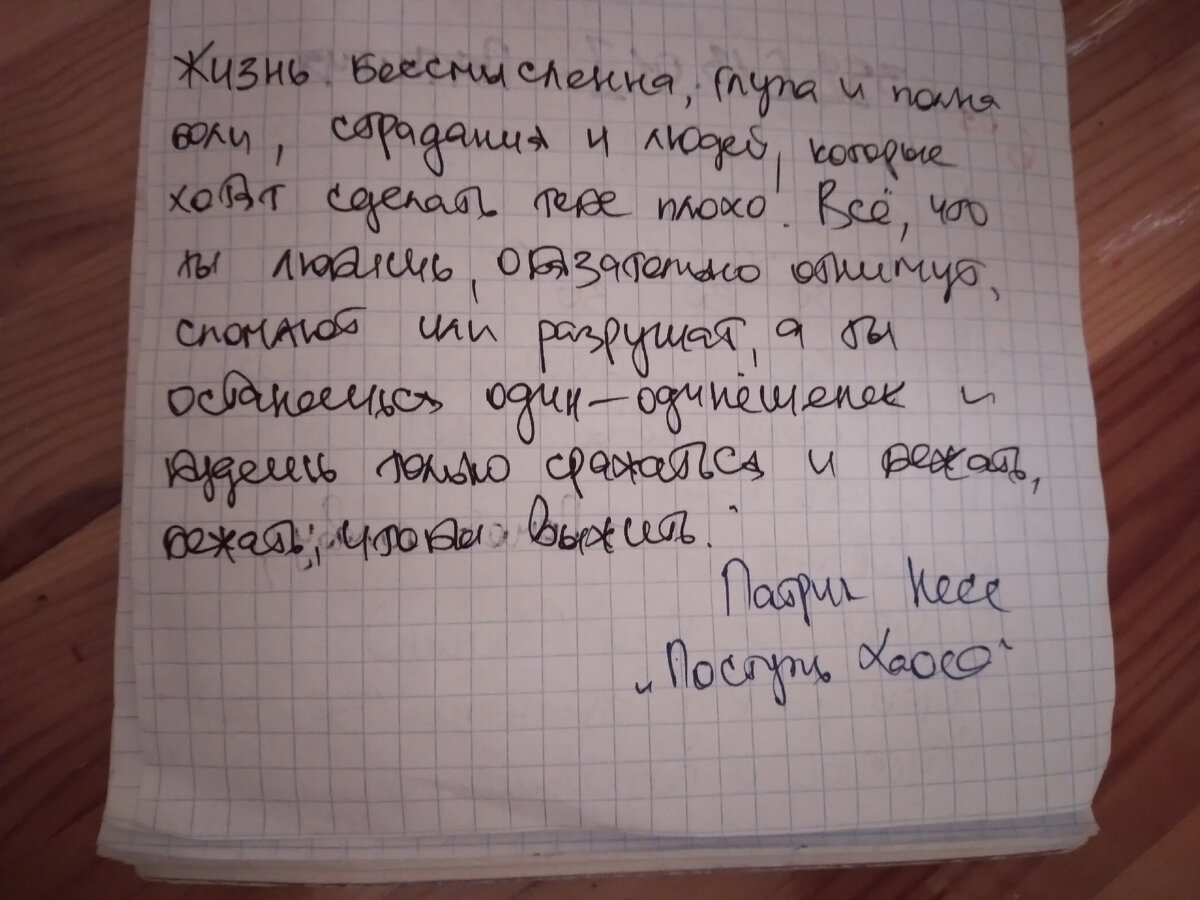 Жизнь бессмысленна, глупа и полна
боли, страдания и людей, которые
хотят сделать тебе плохо. Всё, что
ты любишь, обязательно отнимут,
сломают или разрушат, а ты
останешься один-одинёшенек и
будешь только сражаться и бежать,
бежать, чтобы выжить."
Патрик Несс
„Поступь хаоса"